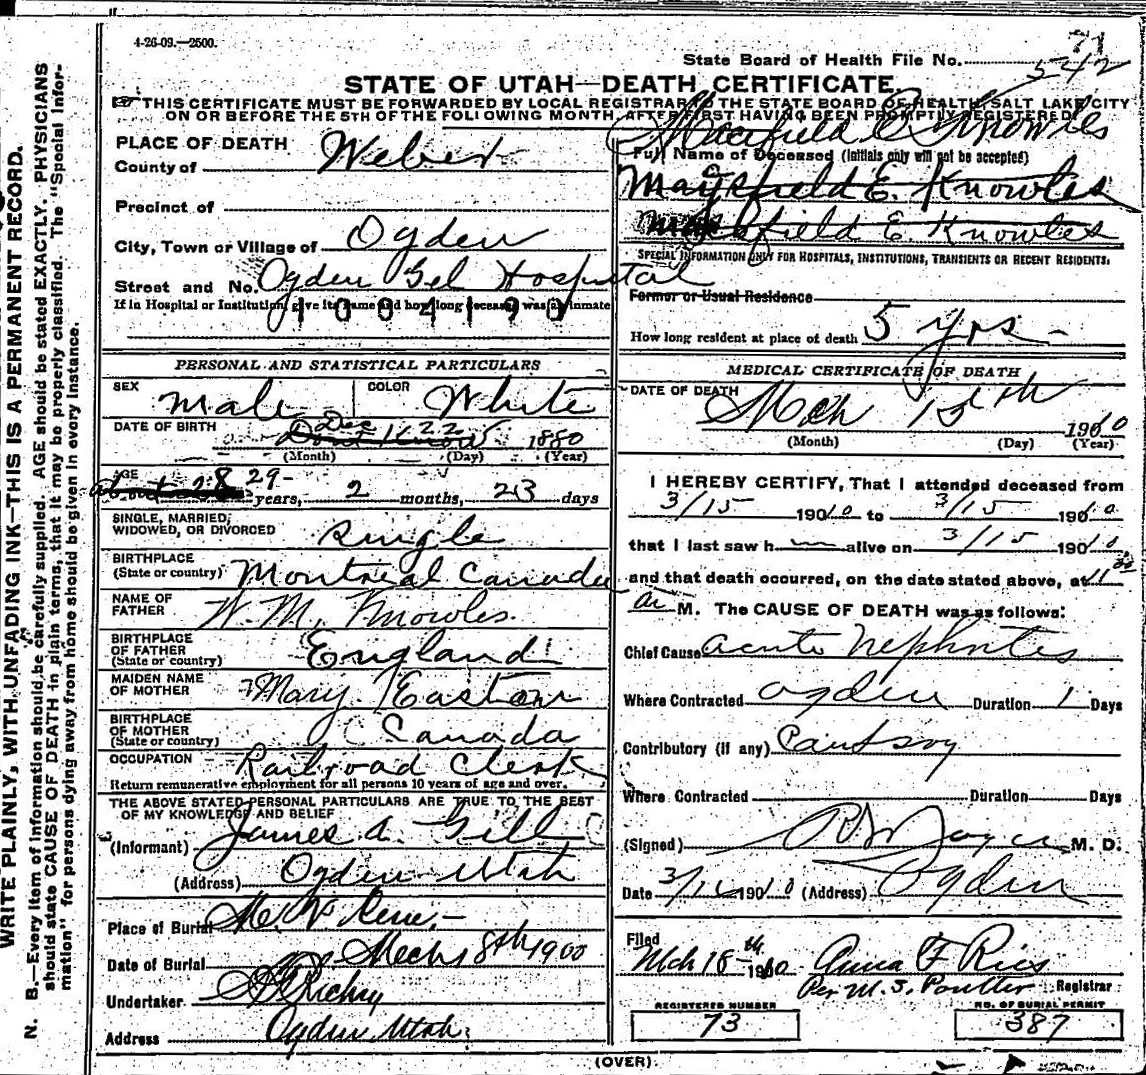 4-26-09.—2500.
71
State Board of Health File No. 542
STATE OF UTAH—DEATH CERTIFICATE.
THIS CERTIFICATE MUST BE FORWARDED BY LOCAL REGISTRAR TO THE STATE BOARD OF HEALTH, SALT LAKE CITY
ON OR BEFORE THE 5TH OF THE FOLLOWING MONTH, AFTER FIRST HAVING BEEN PROMPTLY REGISTERED.
PLACE OF DEATH
County of Weber
Precinct of
City, Town or Village of Ogden
Street and No. Ogden Gel Hospital
If in Hospital or Institution, give its name and how long deceased was an inmate
PERSONAL AND STATISTICAL PARTICULARS
SEX Male COLOR White
DATE OF BIRTH Dec 22 1880
(Month) (Day) (Year)
AGE about 28 29 years, 2 months, 23 days
SINGLE, MARRIED,
WIDOWED, OR DIVORCED Single
BIRTHPLACE
(State or country) Montreal Canada
NAME OF
FATHER W. M. Knowles.
BIRTHPLACE
OF FATHER
(State or country) England
MAIDEN NAME
OF MOTHER Mary Easton
BIRTHPLACE
OF MOTHER
(State or country) Canada
OCCUPATION Railroad Clerk
Return remunerative employment for all persons 10 years of age and over.
THE ABOVE STATED PERSONAL PARTICULARS ARE TRUE TO THE BEST
OF MY KNOWLEDGE AND BELIEF
(Informant) James A. Gill
(Address) Ogden Utah
Place of Burial
Date of Burial 1900
Undertaker Richey
Address Ogden Utah
E Knowles
Full Name of Deceased (Initials only will not be accepted)
Maysfield E. Knowles
field E. Knowles
SPECIAL INFORMATION ONLY FOR HOSPITALS, INSTITUTIONS, TRANSIENTS OR RECENT RESIDENTS.
Former or Usual Residence
How long resident at place of death 5 yrs -
MEDICAL CERTIFICATE OF DEATH
DATE OF DEATH Mch 15th 1910
(Month) (Day) (Year)
I HEREBY CERTIFY, That I attended deceased from
3/15 1910 to 3/15 1910
that I last saw h alive on 3/15 1910
and that death occurred, on the date stated above, at 11
a M. The CAUSE OF DEATH was as follows:
Chief Cause acute Nephrites
Where Contracted Ogden Duration 1 Days
Contributory (if any)
Where Contracted Duration Days
(Signed) M. D.
Date 3/16 1910 (Address) Ogden
Filed
Mch 18th 1910 Anna F Ries
Per M. S. Poulter Registrar
REGISTERED NUMBER NO. OF BURIAL PERMIT
73 387
(OVER)
WRITE PLAINLY, WITH UNFADING INK—THIS IS A PERMANENT RECORD.
N. B.—Every item of information should be carefully supplied. AGE should be stated EXACTLY. PHYSICIANS
should state CAUSE OF DEATH in plain terms, that it may be properly classified. The "Special Infor-
mation" for persons dying away from home should be given in every instance.